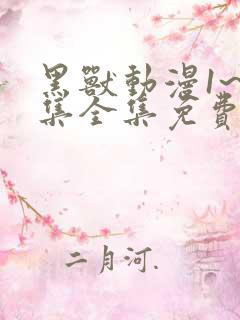 黑獸動漫1~
集全集免費
二月河.